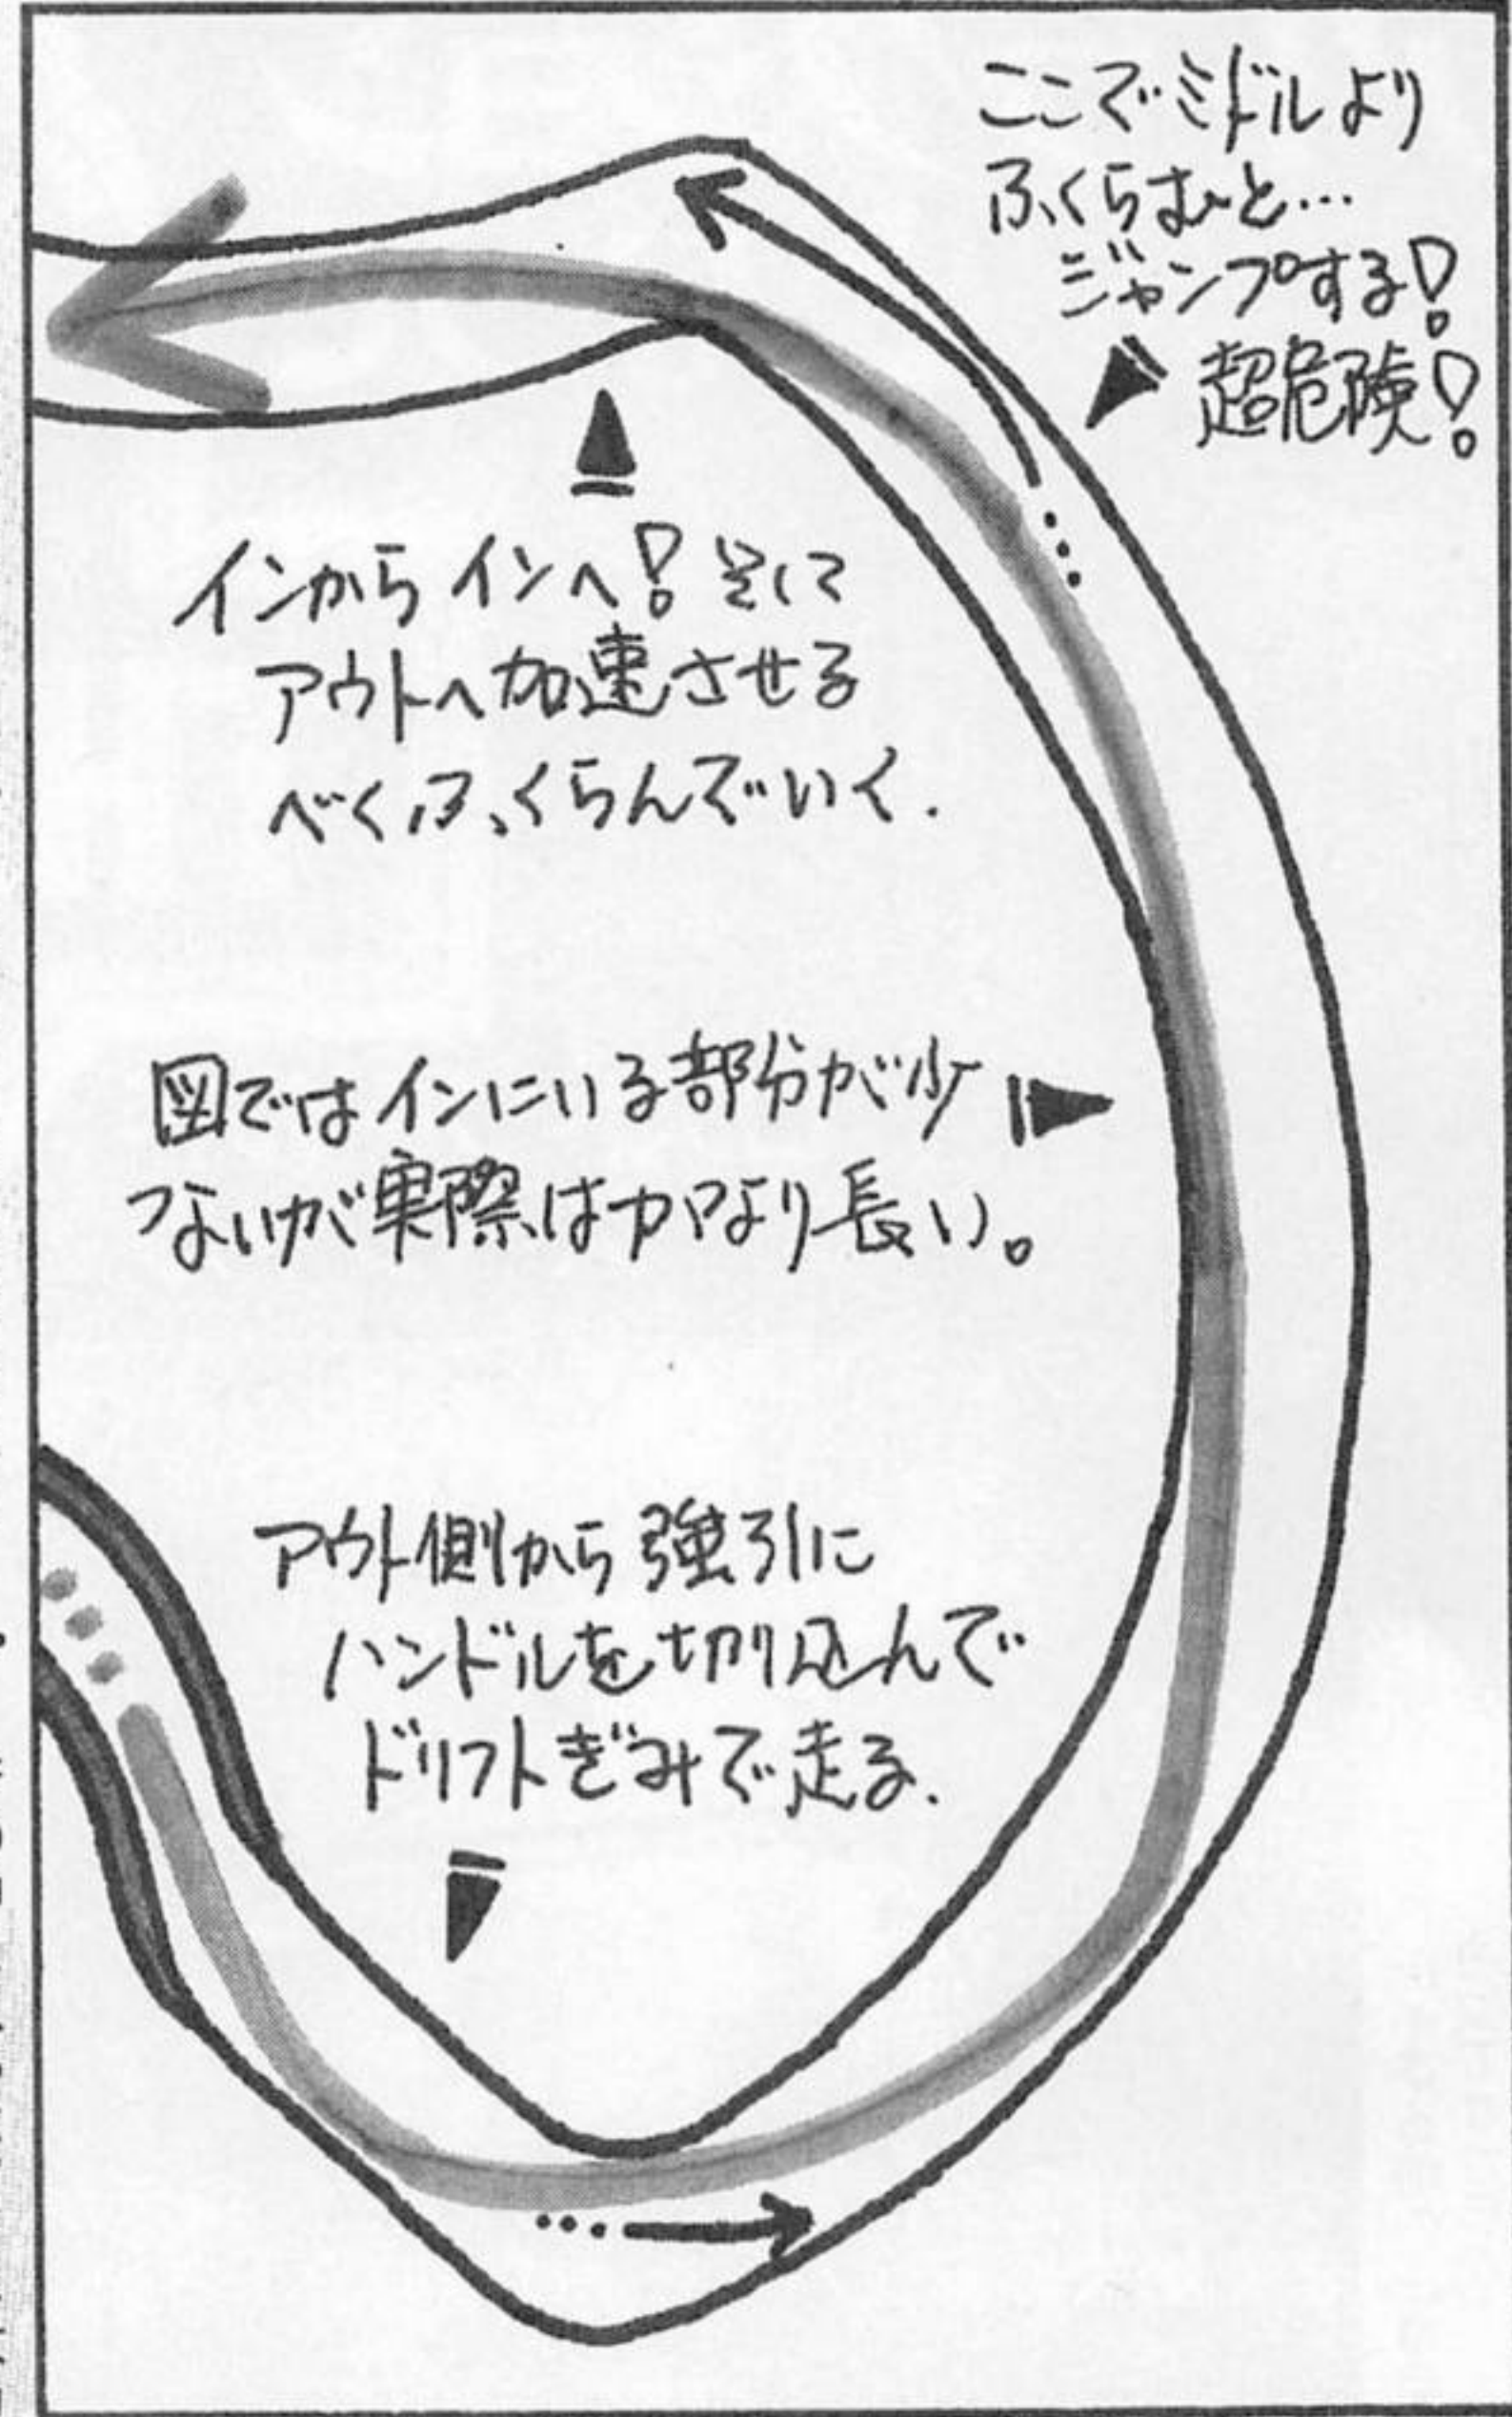 ここでミドルより
ふくらむと…
ジャンプする!
超危険!
インからインへ!そして
アウトへ加速させる
べくふくらんでいく.
図ではインにいる部分が少
つないが実際はかなり長い。
アウト側から強引に
ハンドルを切り込んで
ドリフトぎみで走る.